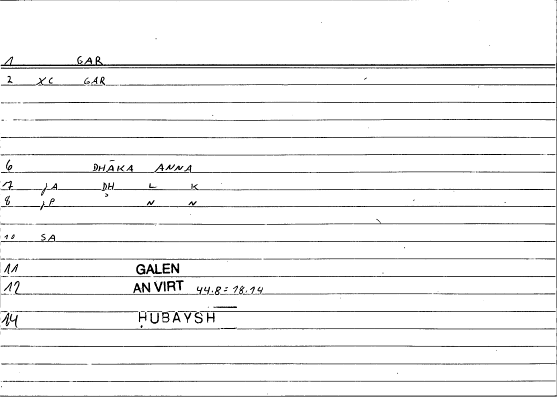 1 GAR
2 XC GAR
6 DHĀKA ANNA
7 jA ḎH L K
8 jP N N
10 SA
11 GALEN
12 AN VIRT 44.8 = 18.14
14 ḤUBAYSH